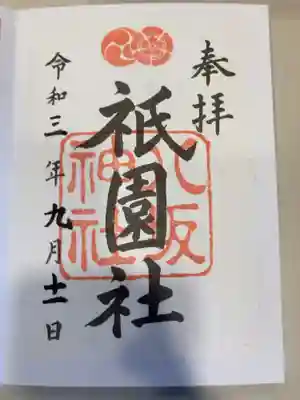 奉拝
祇園社
八坂
神社
令和三年九月十一日